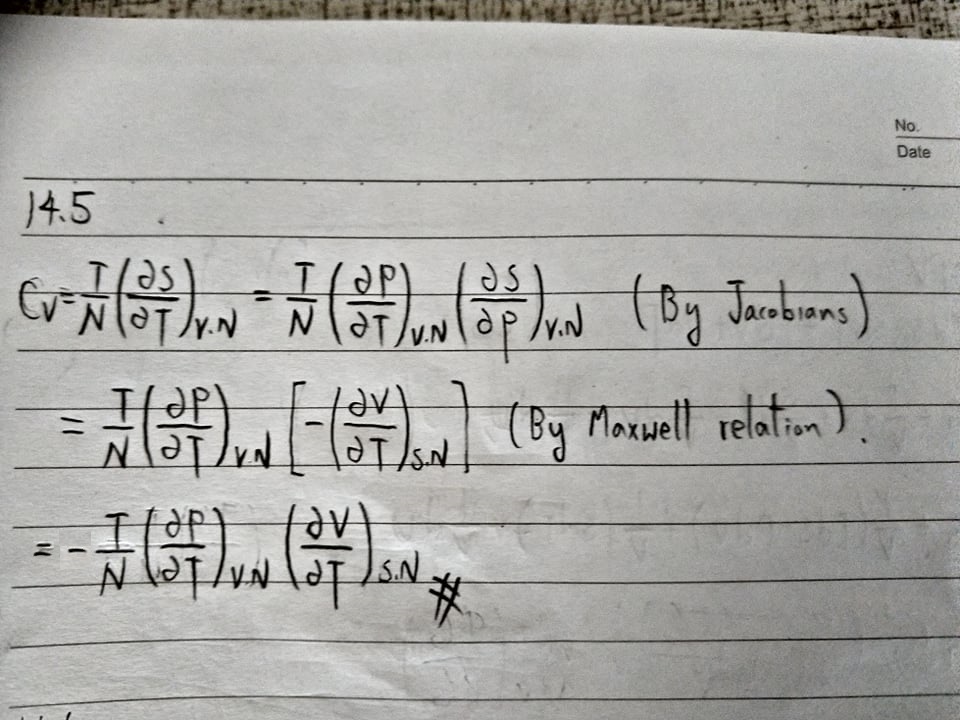 No.
Date
14.5
Cv = T/N (∂S/∂T)V.N = T/N (∂P/∂T)V.N (∂S/∂P)V.N (By Jacobians)
= T/N (∂P/∂T)V.N [-(∂V/∂T)S.N] (By Maxwell relation).
= - T/N (∂P/∂T)V.N (∂V/∂T)S.N #